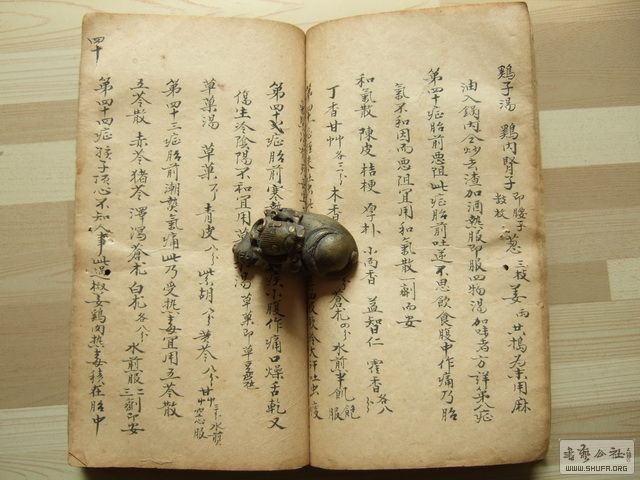 鷄子湯 鷄内腎子 即腰子 葱 三枝 姜
油入鍋内仝炒去渣加酒熱服即服四物湯加味者方詳第八症
第四十症胎前惡阻此症胎前吐逆不思飲食腹中作痛乃胎
氣不和因而惡阻宜用和氣散一劑而安
和氣散 陳皮 桔梗 厚朴 小茴香 益智仁 藿香 各八
丁香 甘艸 各三分 木香 蒼朮 四分 水煎半飢飽服
第四十弍症胎前寒 小腹作痛口燥舌乾又
傷生冷陰陽不和宜用 湯 草菓即草
草菓湯 草菓 青皮 八分 柴胡 黄芩 八分 甘艸 水煎空心服
第四十三症胎前潮熱氣痛此乃受熱毒宜用五苓散
五苓散 赤苓 猪苓 澤瀉 蒼朮 白朮 各八分 水煎服 二三劑即安
第四十四症孩子頂心不知人事此過椒姜鷄肉熱毒積在胎中
四十
書藝公社
WWW.SHUFA.ORG